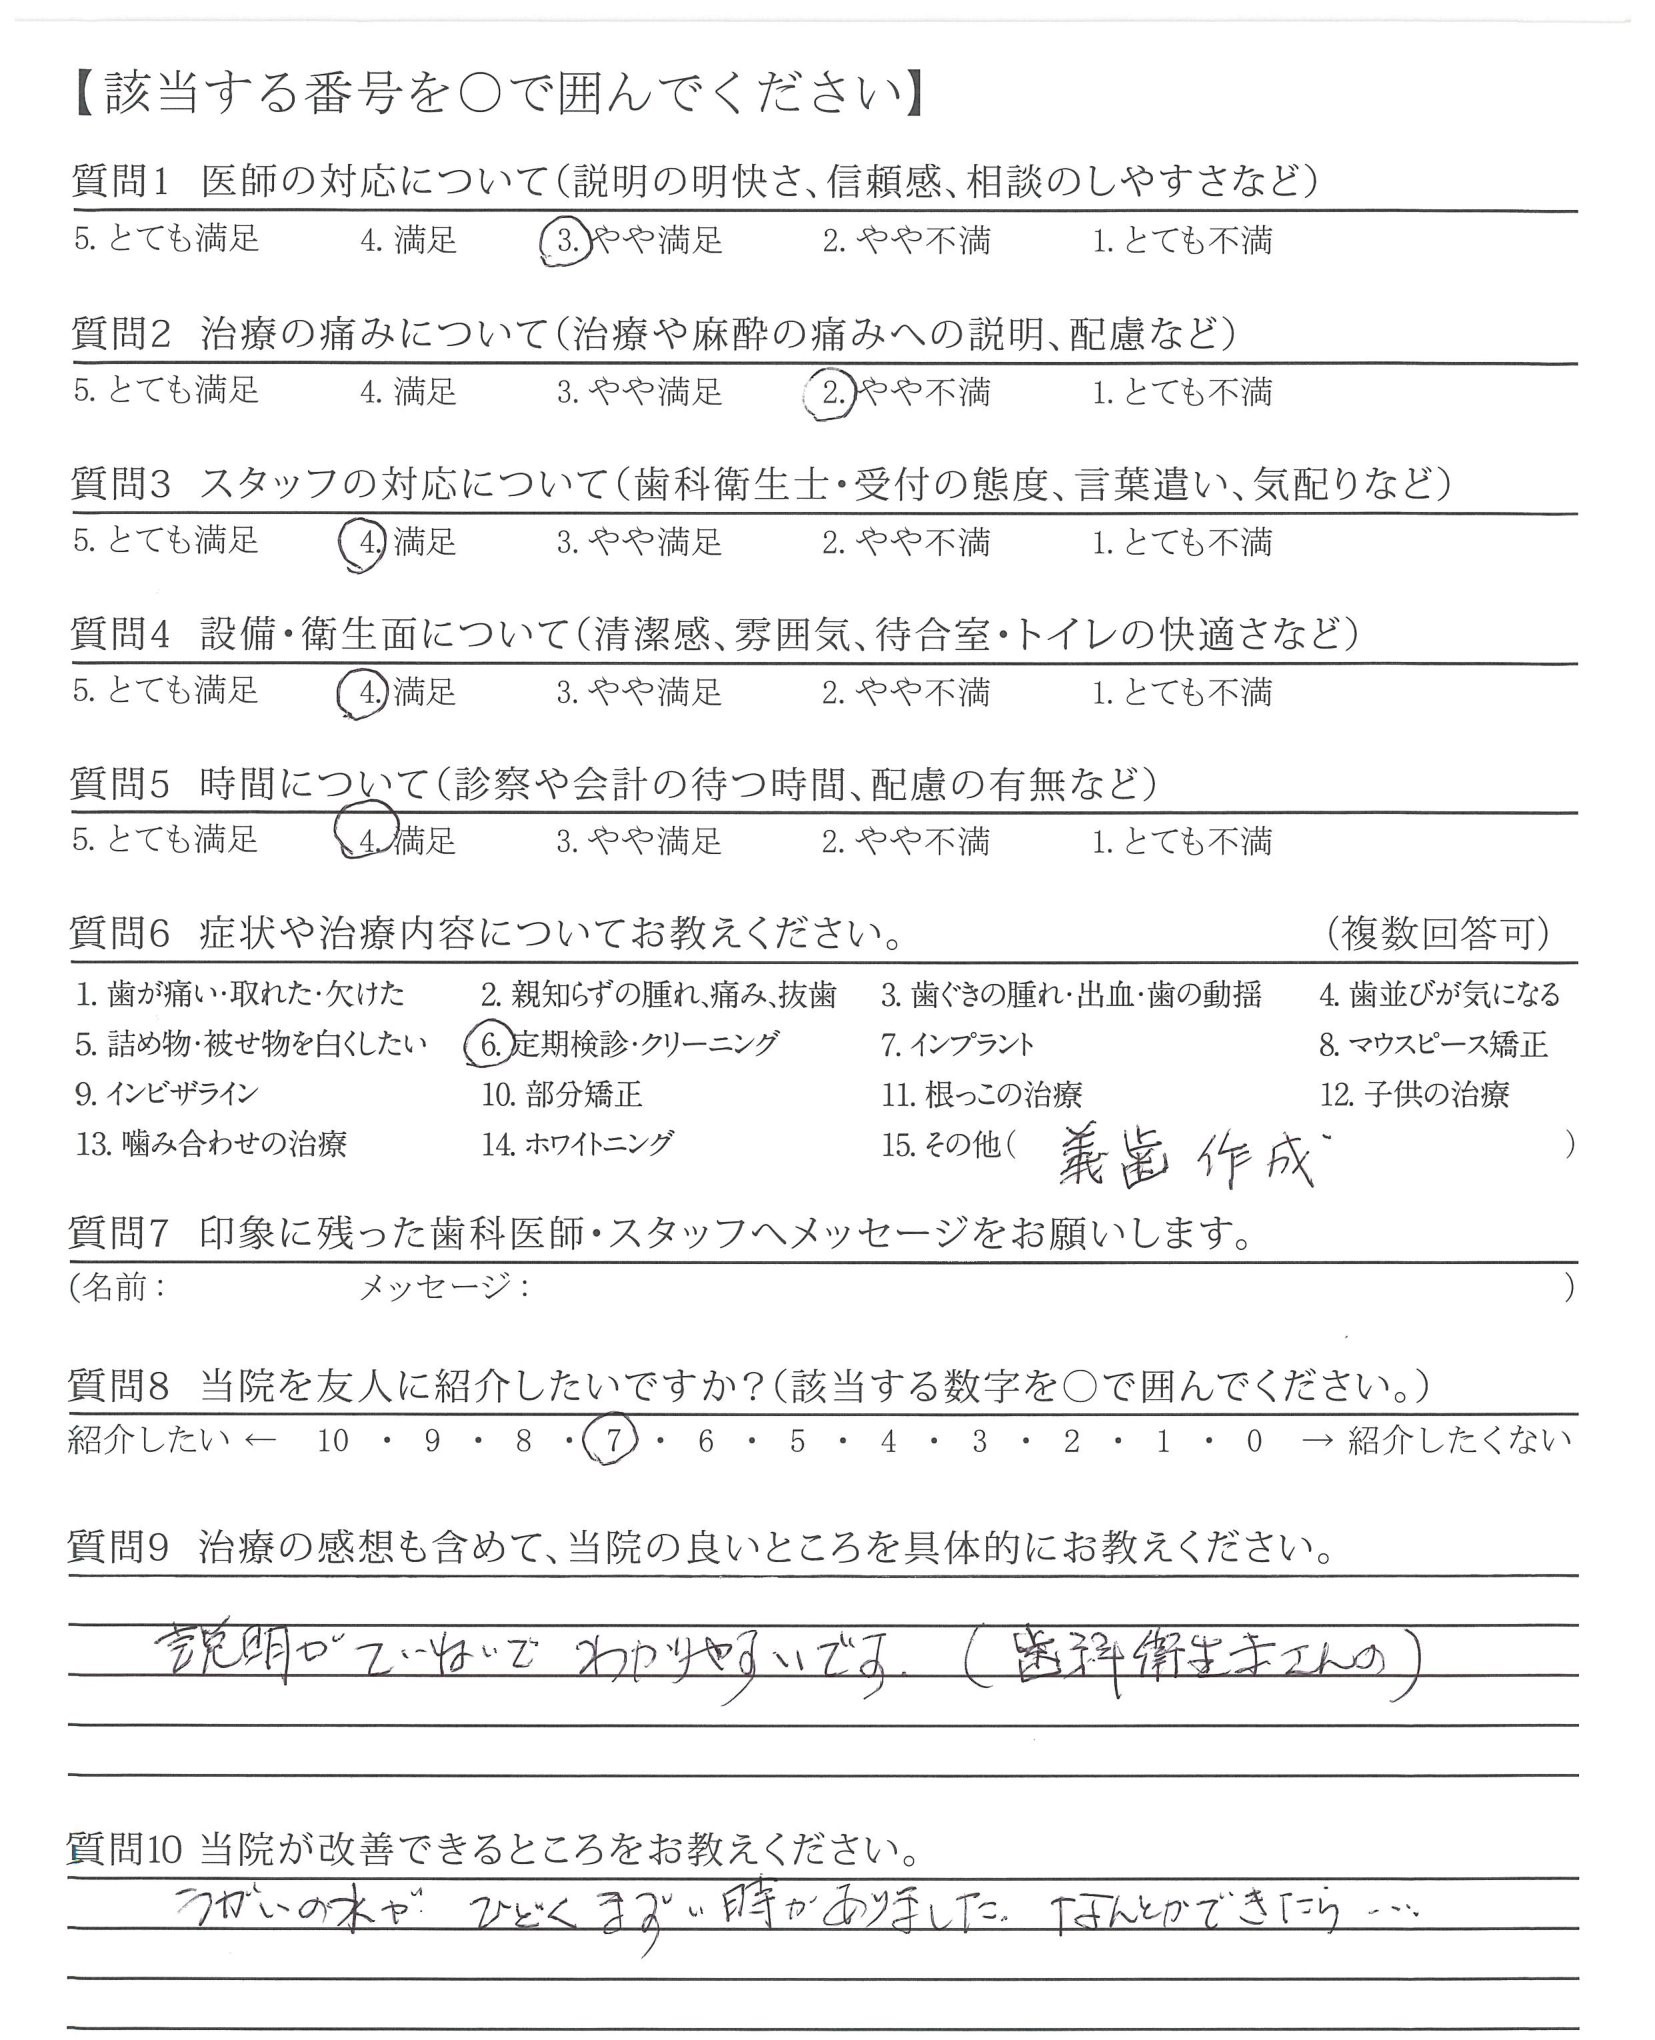 【該当する番号を○で囲んでください】
質問1 医師の対応について(説明の明快さ、信頼感、相談のしやすさなど)
5. とても満足 4. 満足 3. やや満足 2. やや不満 1. とても不満
質問2 治療の痛みについて(治療や麻酔の痛みへの説明、配慮など)
5. とても満足 4. 満足 3. やや満足 2. やや不満 1. とても不満
質問3 スタッフの対応について(歯科衛生士・受付の態度、言葉遣い、気配りなど)
5. とても満足 4. 満足 3. やや満足 2. やや不満 1. とても不満
質問4 設備・衛生面について(清潔感、雰囲気、待合室・トイレの快適さなど)
5. とても満足 4. 満足 3. やや満足 2. やや不満 1. とても不満
質問5 時間について(診察や会計の待つ時間、配慮の有無など)
5. とても満足 4. 満足 3. やや満足 2. やや不満 1. とても不満
質問6 症状や治療内容についてお教えください。 (複数回答可)
1. 歯が痛い・取れた・欠けた 2. 親知らずの腫れ、痛み、抜歯 3. 歯ぐきの腫れ・出血・歯の動揺 4. 歯並びが気になる
5. 詰め物・被せ物を白くしたい 6. 定期検診・クリーニング 7. インプラント 8. マウスピース矯正
9. インビザライン 10. 部分矯正 11. 根っこの治療 12. 子供の治療
13. 噛み合わせの治療 14. ホワイトニング 15. その他( 義歯作成 )
質問7 印象に残った歯科医師・スタッフへメッセージをお願いします。
(名前: メッセージ: )
質問8 当院を友人に紹介したいですか?(該当する数字を○で囲んでください。)
紹介したい ← 10 ・ 9 ・ 8 ・ 7 ・ 6 ・ 5 ・ 4 ・ 3 ・ 2 ・ 1 ・ 0 → 紹介したくない
質問9 治療の感想も含めて、当院の良いところを具体的にお教えください。
説明がていねいでわかりやすいです。(歯科衛生士さんの)
質問10 当院が改善できるところをお教えください。
うがいの水がひどくまずい時がありました。なんとかできたら…